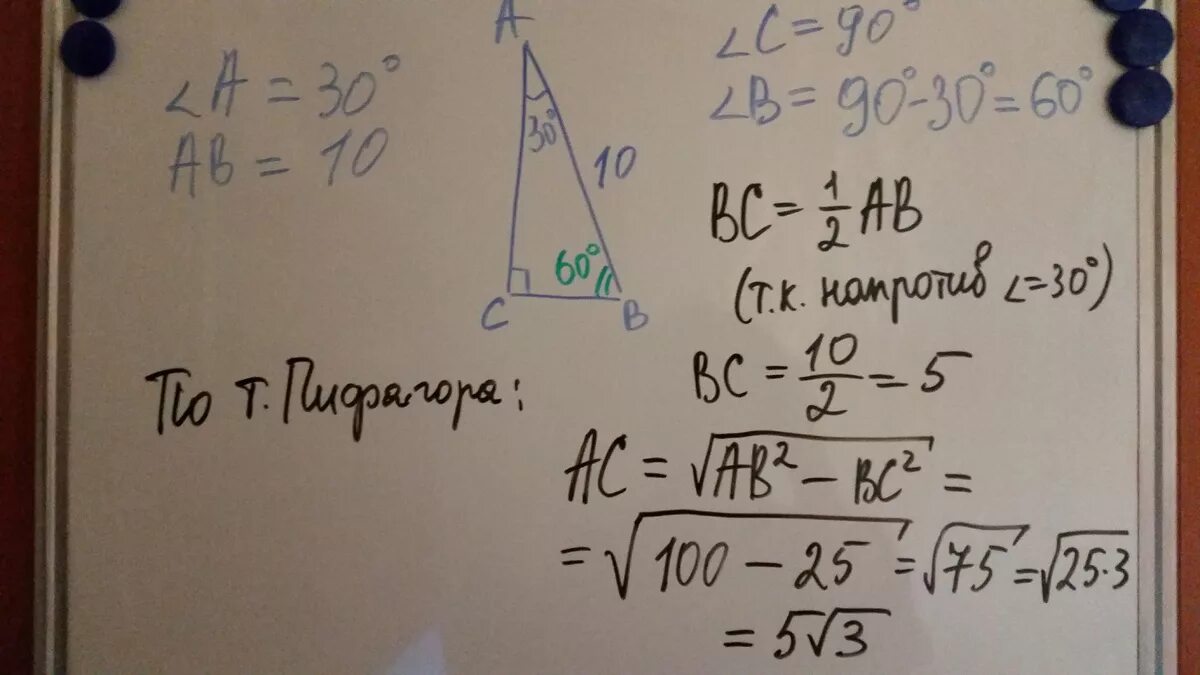 ∠A = 30°
AB = 10
A
30°
10
60°
C
B
∠C = 90°
∠B = 90° - 30° = 60°
BC = 1/2 AB
(т.к. напротив ∠=30°)
BC = 10/2 = 5
По т. Пифагора:
AC = √(AB² - BC²) =
= √(100 - 25) = √75 = √(25·3)
= 5√3